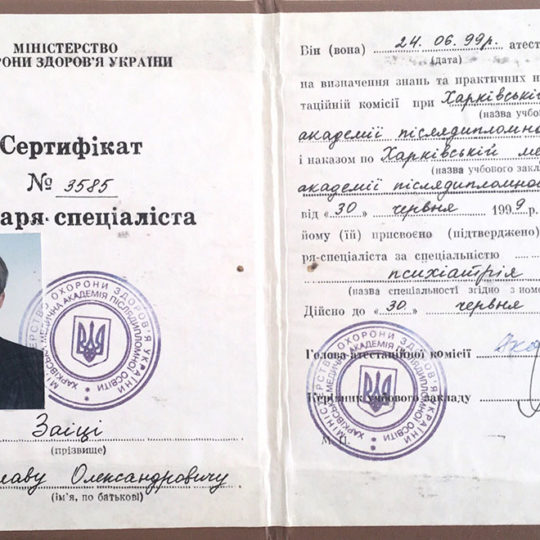 МІНІСТЕРСТВО
ОРОНИ ЗДОРОВ'Я УКРАЇНИ
Сертифікат
№ 3585
аря-спеціаліста
МІНІСТЕРСТВО ОХОРОНИ ЗДОРОВ'Я УКРАЇНИ
ХАРКІВСЬКА МЕДИЧНА АКАДЕМІЯ ПІСЛЯДИПЛОМНОЇ ОСВІТИ
Заїці
(прізвище)
лаву Олександровичу
(ім'я, по батькові)
Він (вона) 24. 06. 99р. атес
(дата)
на визначення знань та практичних н
таційній комісії при Харківській
(назва учбов
академії післядипломно
і наказом по Харківській ме
(назва учбового закла
академії післядипломно
від «30» червня 1999 р.
йому (їй) присвоєно (підтверджено)
ря-спеціаліста за спеціальністю
психіатрія
(назва спеціальності згідно з номе
Дійсно до «30» червня
Голова атестаційної комісії
Керівник учбового закладу
МІНІСТЕРСТВО ОХОРОНИ ЗДОРОВ'Я УКРАЇНИ
ХАРКІВСЬКА МЕДИЧНА АКАДЕМІЯ ПІСЛЯДИПЛОМНОЇ ОСВІТИ
М. П.